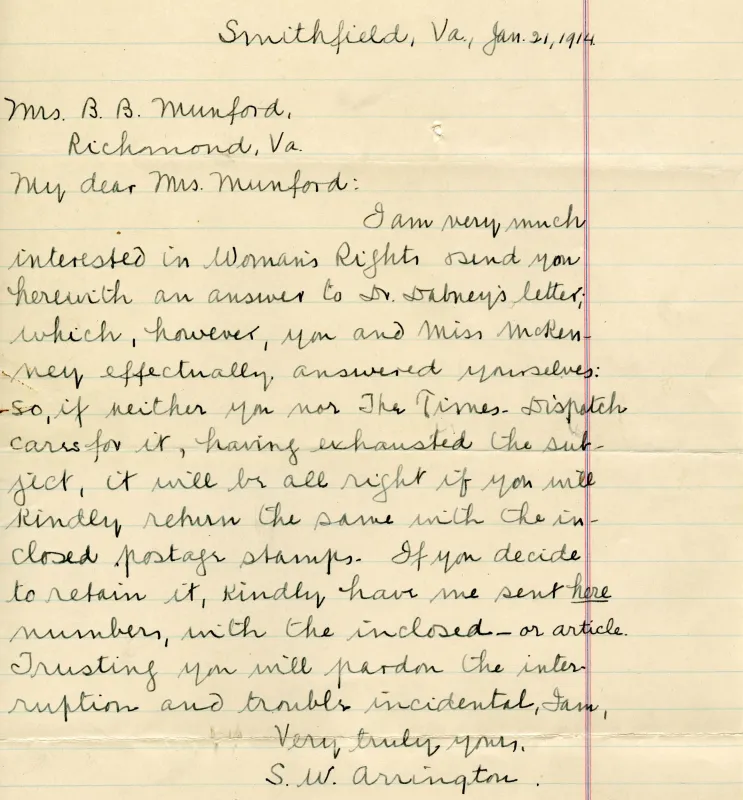 Smithfield, Va., Jan. 21, 1914.
Mrs. B. B. Munford,
Richmond, Va.
My dear Mrs. Munford:
I am very much
interested in Woman's Rights send you
herewith an answer to Dr. Dabney's letter;
which, however, you and Miss McKen-
ney effectually answered yourselves:
so, if neither you nor The Times-Dispatch
cares for it, having exhausted the sub-
ject, it will be all right if you will
kindly return the same with the in-
closed postage stamps. If you decide
to retain it, kindly have me sent here
numbers, with the inclosed - or article.
Trusting you will pardon the inter-
ruption and trouble incidental, I am,
Very truly yours,
S. W. Arrington.